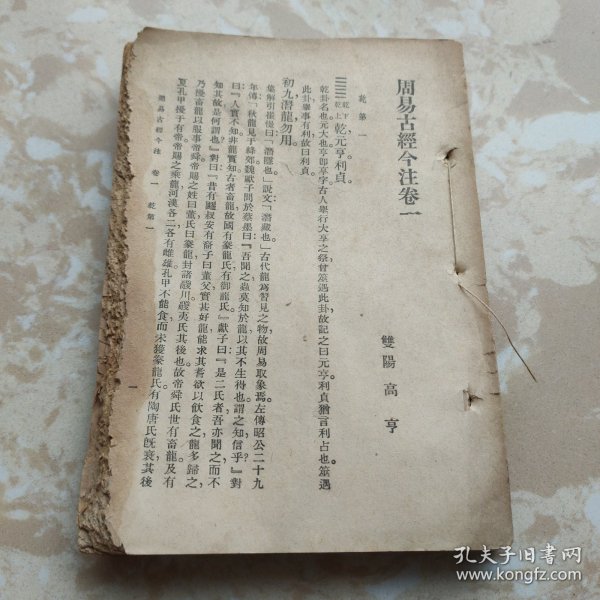 周易古經今注卷一
雙陽高亨
乾第一
乾下乾上 乾，元亨，利貞。
乾，卦名也。元，大也。亨，卽享字。古人舉行大享之祭，曾筮遇此卦，故記之曰元亨。利貞，猶言利占也。筮遇
此卦，舉事有利，故曰利貞。
初九，潛龍勿用。
集解引崔憬曰：『潛，隱也。』說文：『潛，藏也。』古代龍爲習見之物，故周易取象焉。左傳昭公二十九
年傳：『秋，龍見于絳郊。魏獻子問於蔡墨曰：「吾聞之，蟲莫知於龍，以其不生得也，謂之知，信乎？」對
曰：「人實不知，非龍實知。古者畜龍，故國有豢龍氏，有御龍氏。」獻子曰：「是二氏者，吾亦聞之，而不
知其故，是何謂也？」對曰：「昔有飂叔安，有裔子曰董父，實甚好龍，能求其耆欲以飲食之，龍多歸之，
乃擾畜龍以服事帝舜，帝賜之姓曰董，氏曰豢龍，封諸鬷川，鬷夷氏其後也。故帝舜氏世有畜龍。及有
夏孔甲，擾于有帝，帝賜之乘龍，河漢各二，各有雌雄，孔甲不能食，而未獲豢龍氏。有陶唐氏旣衰，其後
周易古經今注 卷一 乾第一
一
孔夫子旧书网
www.kongfz.com